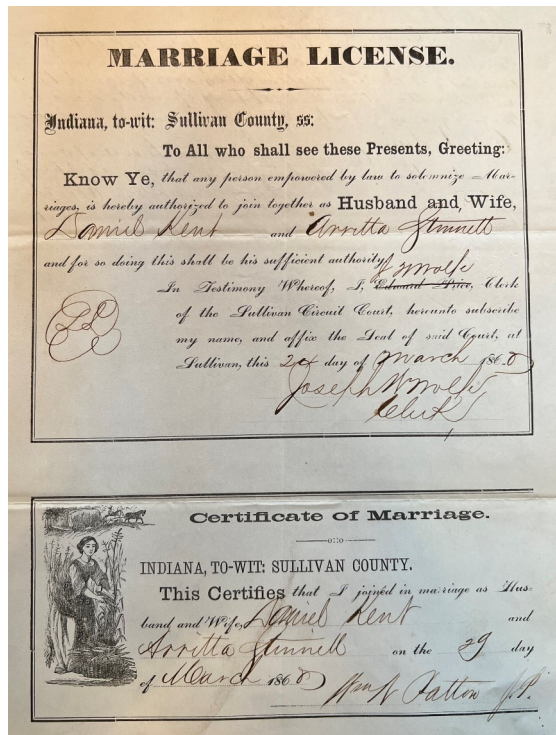 MARRIAGE LICENSE.
Indiana, to-wit: Sullivan County, ss:
To All who shall see these Presents, Greeting:
Know Ye, that any person empowered by law to solemnize Mar-
riages, is hereby authorized to join together as Husband and Wife,
Daniel Kent and Arritta Stinnett
and for so doing this shall be his sufficient authority.
In Testimony Whereof, I, Edward Price, Clerk
of the Sullivan Circuit Court, hereunto subscribe
my name, and affix the Seal of said Court, at
Sullivan, this day of March 186
Joseph W Wolfe
Clerk
Certificate of Marriage.
INDIANA, TO-WIT: SULLIVAN COUNTY.
This Certifies that I joined in marriage as Hus-
band and Wife, Daniel Kent and
Arritta Stinnell on the 29 day
of March 186
Wm N Patton J.P.